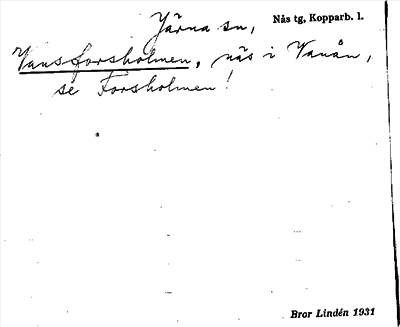 Järna sn, Nås tg, Kopparb. l.
Vansforsholmen, näs i Vanån,
se Forsholmen!
Bror Lindén 1931